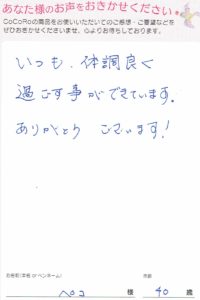 あなた様のお声をおきかせください。
CoCoRoの商品をお使いいただいてのご感想・ご要望などを
ぜひおきかせくださいませ。心よりお待ちしております。
いつも、体調良く
過ごす事ができています。
ありがとう ございます!
お名前(本名 or ペンネーム)
年齢
ペコ 様 40 歳